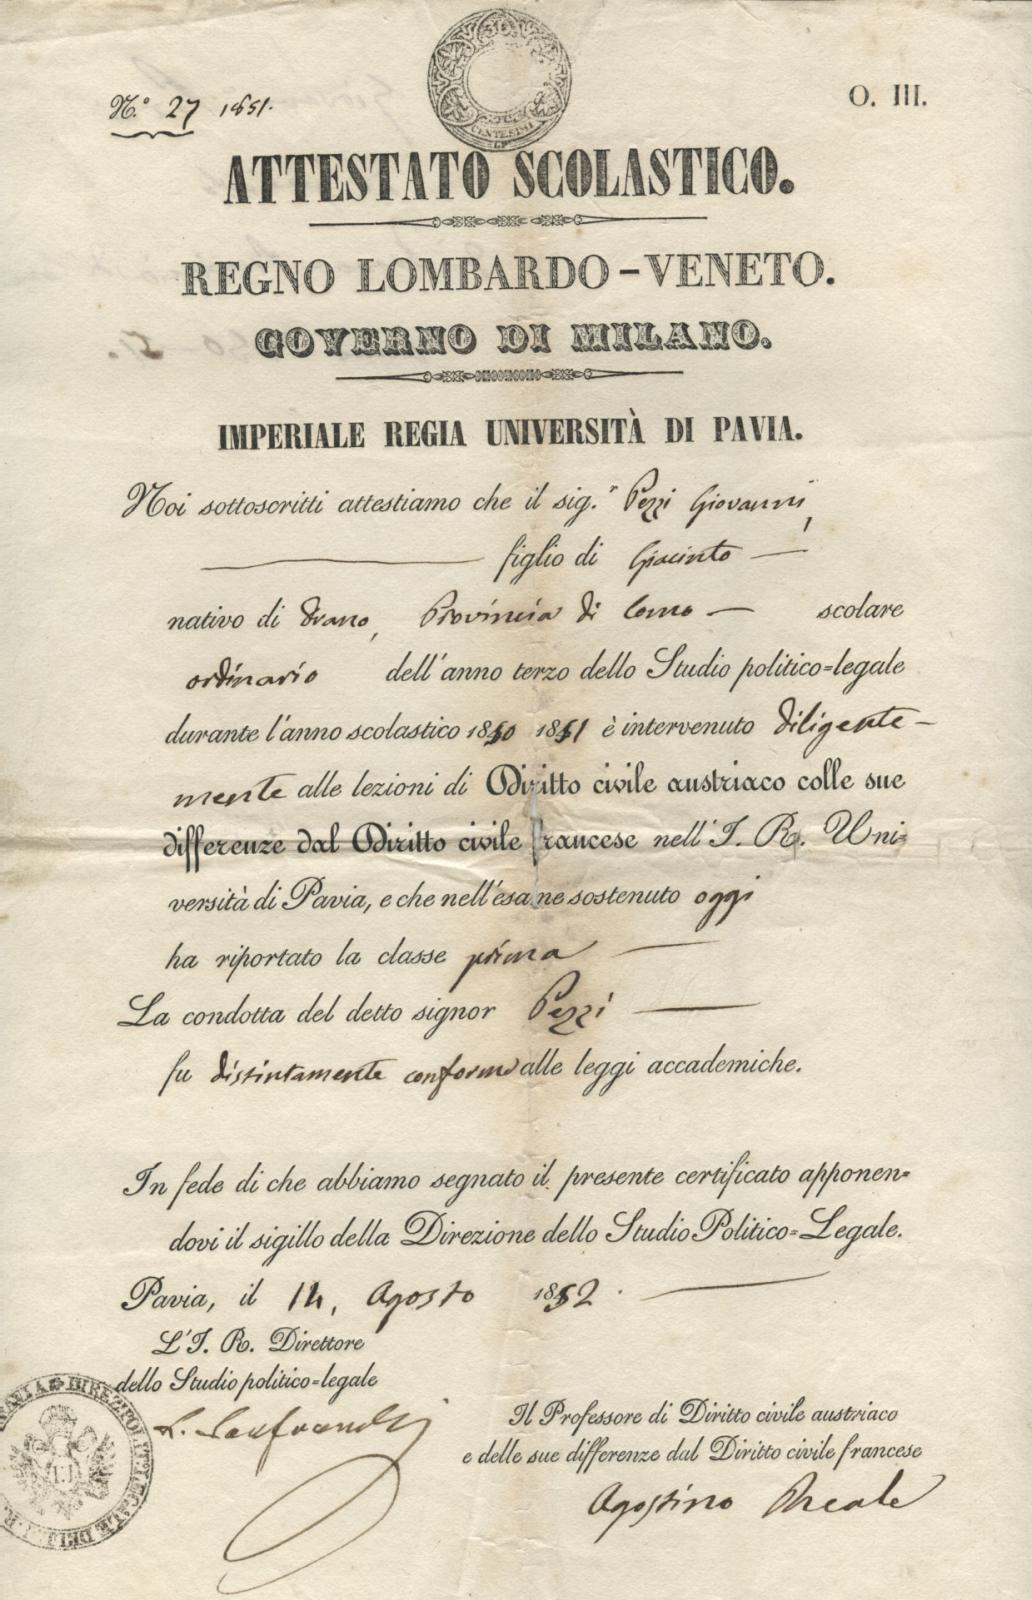 N.º 27 1851.
O. III.
CENTESIMI
ATTESTATO SCOLASTICO.
REGNO LOMBARDO-VENETO.
GOVERNO DI MILANO.
IMPERIALE REGIA UNIVERSITÀ DI PAVIA.
Noi sottoscritti attestiamo che il sig.r Pezzi Giovanni,
figlio di Giacinto
nativo di Drano, Provincia di Como — scolare
ordinario dell'anno terzo dello Studio politico=legale
durante l'anno scolastico 1850 1851 è intervenuto diligente-
mente alle lezioni di Diritto civile austriaco colle sue
differenze dal Diritto civile francese nell'I. R. Uni=
versità di Pavia, e che nell'esame sostenuto oggi
ha riportato la classe prima
La condotta del detto signor Pezzi
fu distintamente conforme alle leggi accademiche.
In fede di che abbiamo segnato il presente certificato apponen=
dovi il sigillo della Direzione dello Studio Politico=Legale.
Pavia, il 14, Agosto 1852.
L'I. R. Direttore
dello Studio politico=legale
Il Professore di Diritto civile austriaco
e delle sue differenze dal Diritto civile francese
Agostino Reale